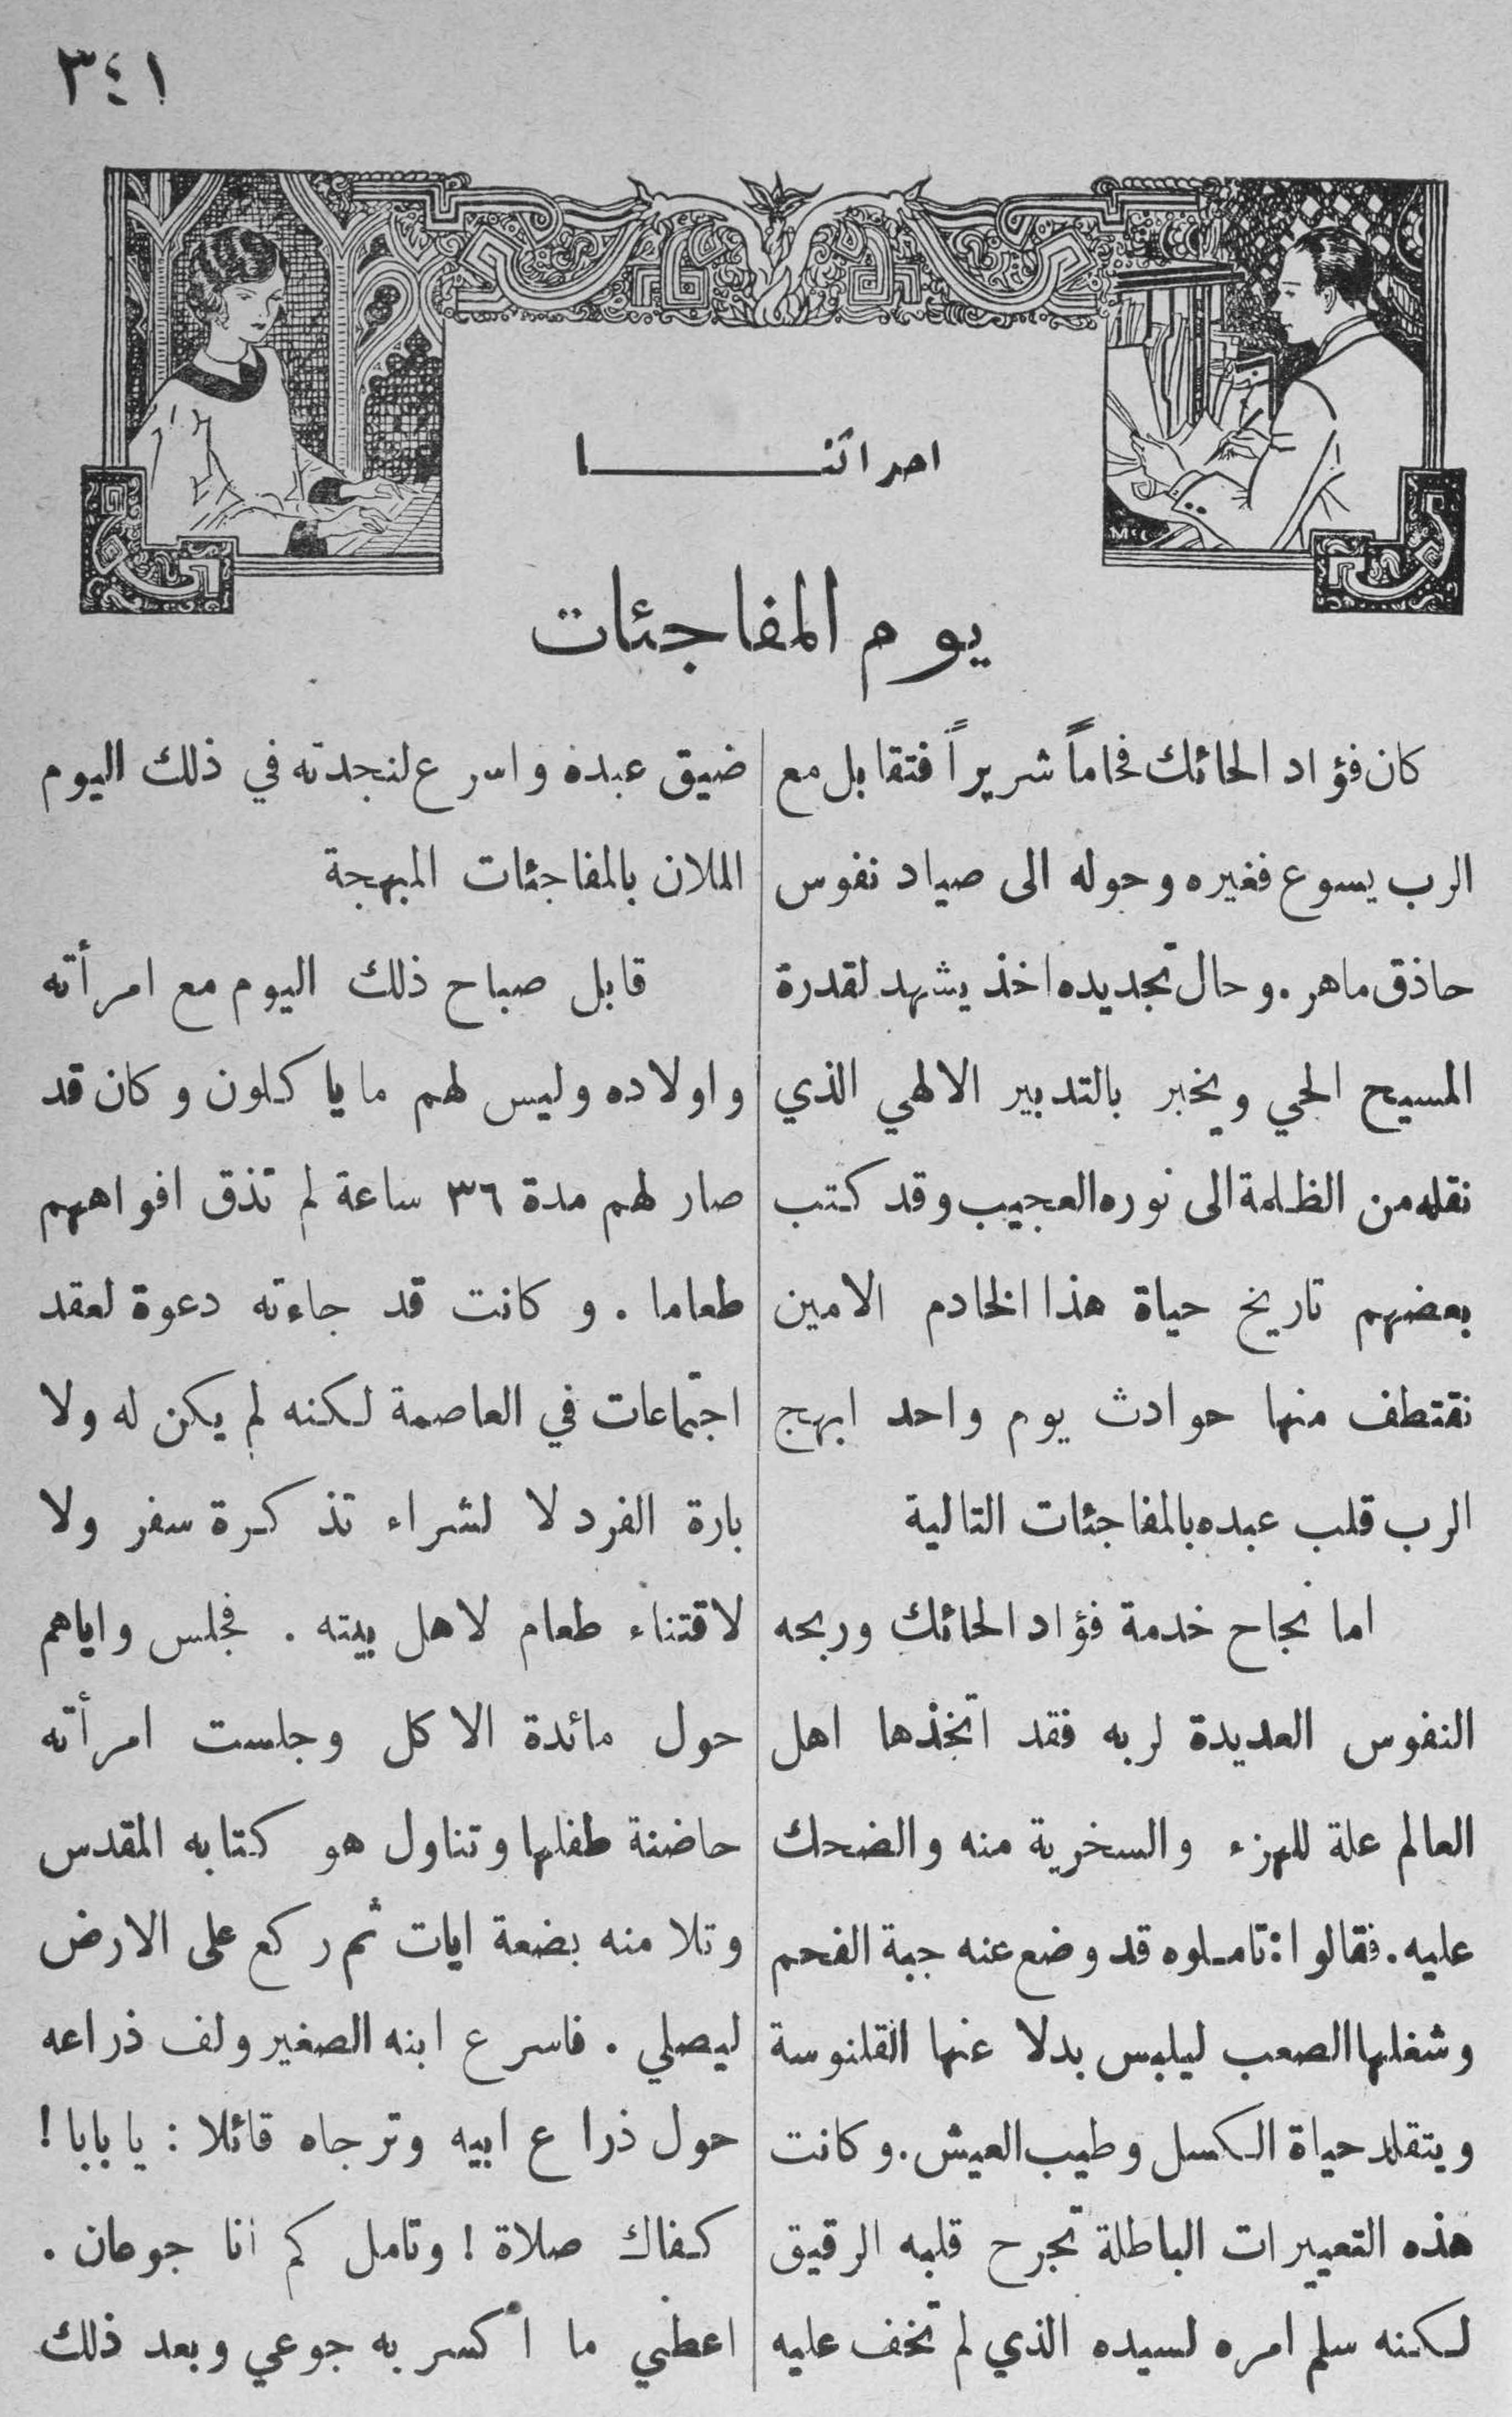 ٣٤١
احداثنا
يوم المفاجئات
كان فؤاد الحائك فحاماً شريراً فتقابل مع
الرب يسوع فغيره وحوله الى صياد نفوس
حاذق ماهر. وحال تجديده اخذ يشهد لقدرة
المسيح الحي ويخبر بالتدبير الالهي الذي
نقله من الظلمة الى نوره العجيب وقد كتب
بعضهم تاريخ حياة هذا الخادم الامين
نقتطف منها حوادث يوم واحد ابهج
الرب قلب عبده بالمفاجئات التالية
اما نجاح خدمة فؤاد الحائك وربحه
النفوس العديدة لربه فقد اتخذها اهل
العالم علة للهزء والسخرية منه والضحك
عليه. فقالوا: تاملوه قد وضع عنه جبة الفحم
وشغلها الصعب ليلبس بدلا عنها القلنوسة
ويتقلد حياة الكسل وطيب العيش. وكانت
هذه التعييرات الباطلة تجرح قلبه الرقيق
لكنه سلم امره لسيده الذي لم تخف عليه
ضيق عبده واسرع لنجدته في ذلك اليوم
الملان بالمفاجئات المبهجة
قابل صباح ذلك اليوم مع امرأته
واولاده وليس لهم ما ياكلون وكان قد
صار لهم مدة ٣٦ ساعة لم تذق افواههم
طعاما. وكانت قد جاءته دعوة لعقد
اجتماعات في العاصمة لكنه لم يكن له ولا
بارة الفرد لا لشراء تذكرة سفر ولا
لاقتناء طعام لاهل بيته. فجلس واياهم
حول مائدة الاكل وجلست امرأته
حاضنة طفلها وتناول هو كتابه المقدس
وتلا منه بضعة ايات ثم ركع على الارض
ليصلي. فاسرع ابنه الصغير ولف ذراعه
حول ذراع ابيه وترجاه قائلا: يا بابا!
كفاك صلاة! وتامل كم انا جوعان.
اعطني ما أكسر به جوعي وبعد ذلك